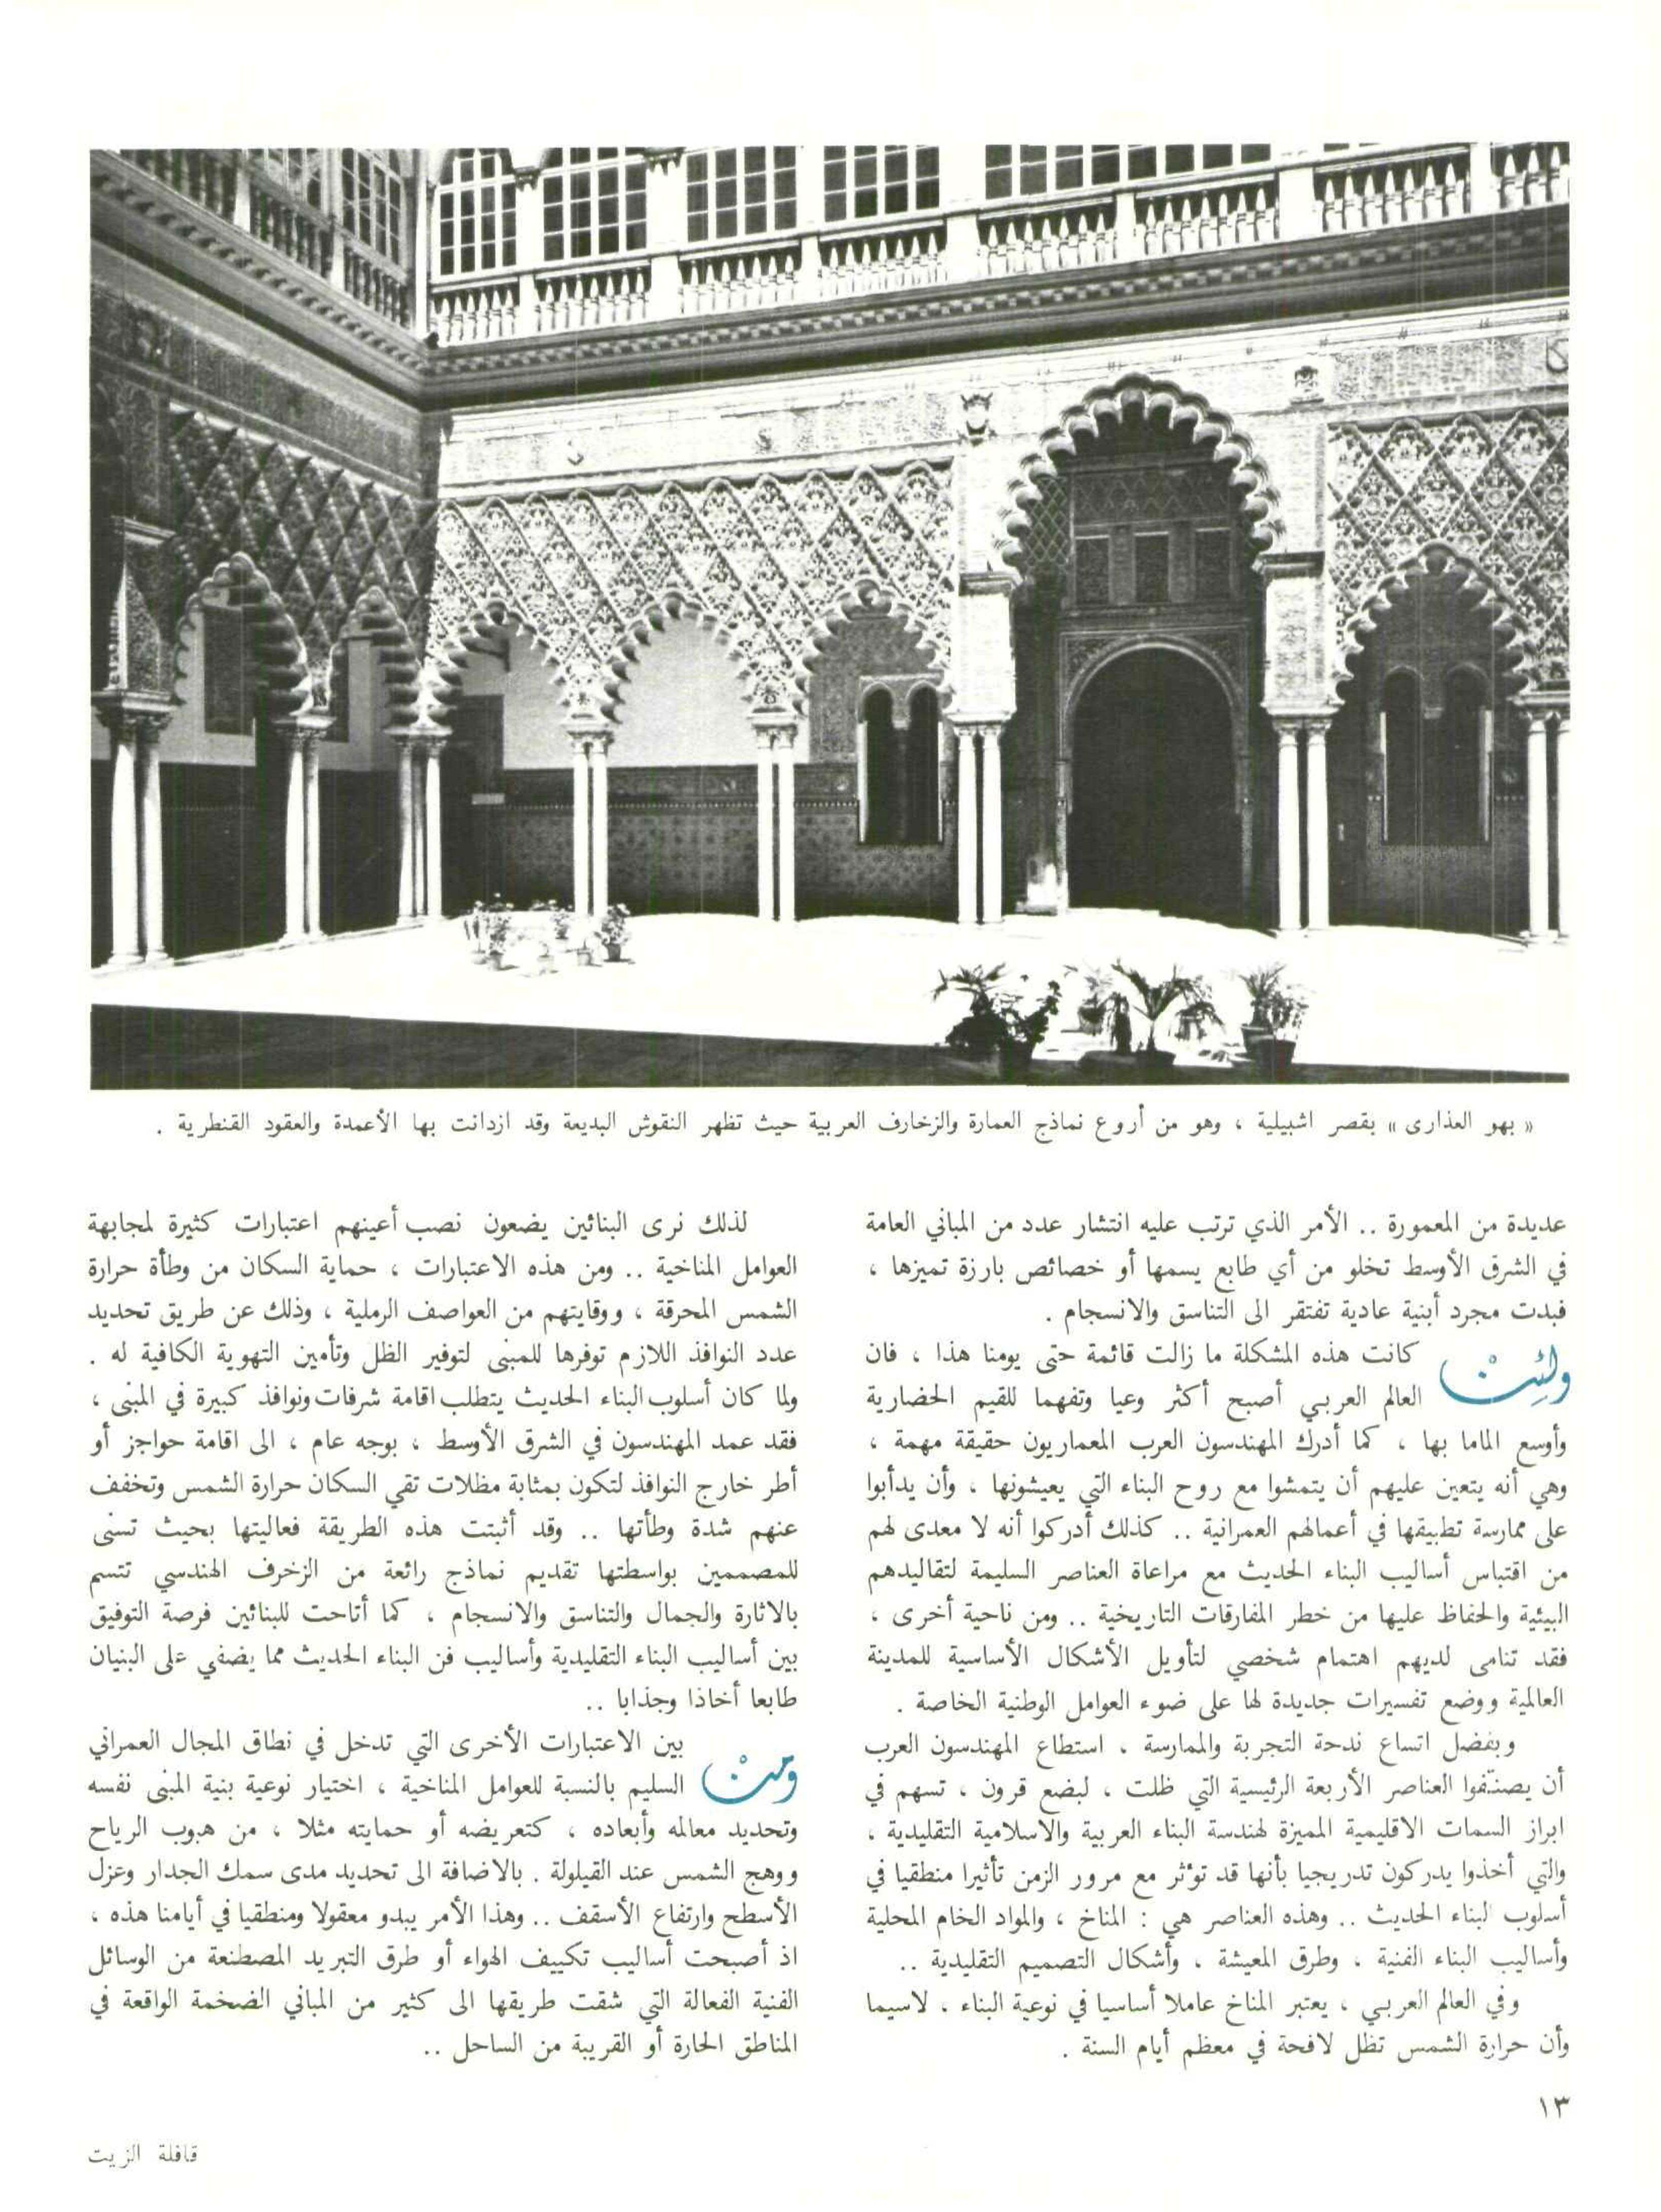 « بهو العذارى » بقصر اشبيلية ، وهو من أروع نماذج العمارة والزخارف العربية حيث تظهر النقوش البديعة وقد ازدانت بها الأعمدة والعقود القنطرية .
عديدة من المعمورة .. الأمر الذي ترتب عليه انتشار عدد من المباني العامة
في الشرق الأوسط تخلو من أي طابع يسمها أو خصائص بارزة تميزها ،
فبدت مجرد أبنية عادية تفتقر الى التناسق والانسجام .
ولئن كانت هذه المشكلة ما زالت قائمة حتى يومنا هذا ، فان
العالم العربي أصبح أكثر وعيا وتفهما للقيم الحضارية
وأوسع الماما بها ، كما أدرك المهندسون العرب المعماريون حقيقة مهمة ،
وهي أنه يتعين عليهم أن يتمشوا مع روح البناء التي يعيشونها ، وأن يدأبوا
على ممارسة تطبيقها في أعمالهم العمرانية .. كذلك أدركوا أنه لا معدى لهم
من اقتباس أساليب البناء الحديث مع مراعاة العناصر السليمة لتقاليدهم
البيئية والحفاظ عليها من خطر المفارقات التاريخية .. ومن ناحية أخرى ،
فقد تنامى لديهم اهتمام شخصي لتأويل الأشكال الأساسية للمدينة
العالمية ووضع تفسيرات جديدة لها على ضوء العوامل الوطنية الخاصة .
وبفضل اتساع ندحة التجربة والممارسة ، استطاع المهندسون العرب
أن يصنّفوا العناصر الأربعة الرئيسية التي ظلت ، لبضع قرون ، تسهم في
ابراز السمات الاقليمية المميزة لهندسة البناء العربية والاسلامية التقليدية ،
والتي أخذوا يدركون تدريجيا بأنها قد تؤثر مع مرور الزمن تأثيرا منطقيا في
أسلوب البناء الحديث .. وهذه العناصر هي : المناخ ، والمواد الخام المحلية
وأساليب البناء الفنية ، وطرق المعيشة ، وأشكال التصميم التقليدية ..
وفي العالم العربي ، يعتبر المناخ عاملا أساسيا في نوعية البناء ، لاسيما
وأن حرارة الشمس تظل لافحة في معظم أيام السنة .
لذلك نرى البنائين يضعون نصب أعينهم اعتبارات كثيرة لمجابهة
العوامل المناخية .. ومن هذه الاعتبارات ، حماية السكان من وطأة حرارة
الشمس المحرقة ، ووقايتهم من العواصف الرملية ، وذلك عن طريق تحديد
عدد النوافذ اللازم توفرها للمبنى لتوفير الظل وتأمين التهوية الكافية له .
ولما كان أسلوب البناء الحديث يتطلب اقامة شرفات ونوافذ كبيرة في المبنى ،
فقد عمد المهندسون في الشرق الأوسط ، بوجه عام ، الى اقامة حواجز أو
أطر خارج النوافذ لتكون بمثابة مظلات تقي السكان حرارة الشمس وتخفف
عنهم شدة وطأتها .. وقد أثبتت هذه الطريقة فعاليتها بحيث تسنى
للمصممين بواسطتها تقديم نماذج رائعة من الزخرف الهندسي تتسم
بالاثارة والجمال والتناسق والانسجام ، كما أتاحت للبنائين فرصة التوفيق
بين أساليب البناء التقليدية وأساليب فن البناء الحديث مما يضفي على البنيان
طابعا أخاذا وجذابا ..
ومن بين الاعتبارات الأخرى التي تدخل في نطاق المجال العمراني
السليم بالنسبة للعوامل المناخية ، اختيار نوعية بنية المبنى نفسه
وتحديد معالمه وأبعاده ، كتعريضه أو حمايته مثلا ، من هبوب الرياح
ووهج الشمس عند القيلولة . بالاضافة الى تحديد مدى سمك الجدار وعزل
الأسطح وارتفاع الأسقف .. وهذا الأمر يبدو معقولا ومنطقيا في أيامنا هذه ،
اذ أصبحت أساليب تكييف الهواء أو طرق التبريد المصطنعة من الوسائل
الفنية الفعالة التي شقت طريقها الى كثير من المباني الضخمة الواقعة في
المناطق الحارة أو القريبة من الساحل ..
١٣
قافلة الزيت